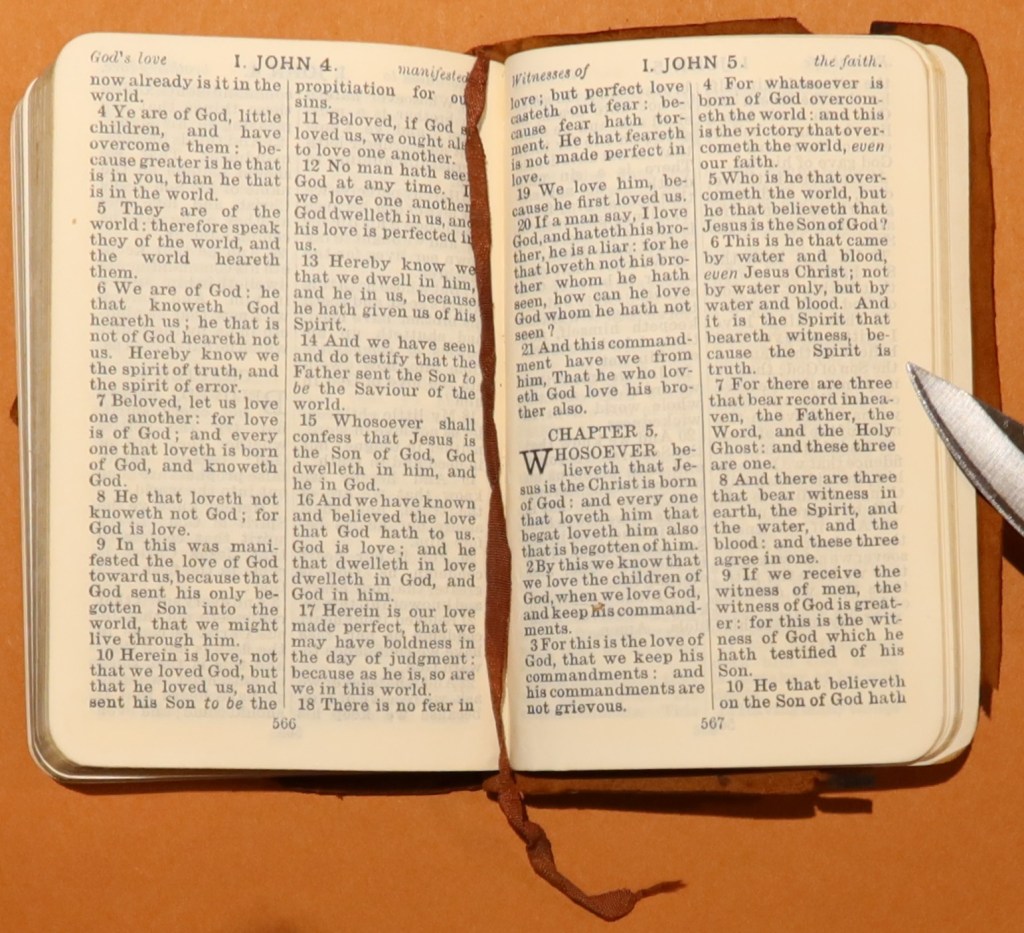 God's love
I. JOHN 4.
manifested
now already is it in the
world.
4 Ye are of God, little
children, and have
overcome them : be-
cause greater is he that
is in you, than he that
is in the world.
5 They are of the
world : therefore speak
they of the world, and
the world heareth
them.
6 We are of God : he
that knoweth God
heareth us ; he that is
not of God heareth not
us. Hereby know we
the spirit of truth, and
the spirit of error.
7 Beloved, let us love
one another: for love
is of God ; and every
one that loveth is born
of God, and knoweth
God.
8 He that loveth not
knoweth not God ; for
God is love.
9 In this was mani-
fested the love of God
toward us, because that
God sent his only be-
gotten Son into the
world, that we might
live through him.
10 Herein is love, not
that we loved God, but
that he loved us, and
sent his Son to be the
propitiation for ou
sins.
11 Beloved, if God s
loved us, we ought als
to love one another.
12 No man hath see
God at any time. I
we love one another
God dwelleth in us, and
his love is perfected in
us.
13 Hereby know we
that we dwell in him,
and he in us, because
he hath given us of his
Spirit.
14 And we have seen
and do testify that the
Father sent the Son to
be the Saviour of the
world.
15 Whosoever shall
confess that Jesus is
the Son of God, God
dwelleth in him, and
he in God.
16 And we have known
and believed the love
that God hath to us.
God is love ; and he
that dwelleth in love
dwelleth in God, and
God in him.
17 Herein is our love
made perfect, that we
may have boldness in
the day of judgment :
because as he is, so are
we in this world.
18 There is no fear in
566
Witnesses of
I. JOHN 5.
the faith.
love ; but perfect love
casteth out fear : be-
cause fear hath tor-
ment. He that feareth
is not made perfect in
love.
19 We love him, be-
cause he first loved us.
20 If a man say, I love
God, and hateth his bro-
ther, he is a liar : for he
that loveth not his bro-
ther whom he hath
seen, how can he love
God whom he hath not
seen ?
21 And this command-
ment have we from
him, That he who lov-
eth God love his bro-
ther also.
CHAPTER 5.
WHOSOEVER be-
lieveth that Je-
sus is the Christ is born
of God : and every one
that loveth him that
begat loveth him also
that is begotten of him.
2 By this we know that
we love the children of
God, when we love God,
and keep his command-
ments.
3 For this is the love of
God, that we keep his
commandments : and
his commandments are
not grievous.
4 For whatsoever is
born of God overcom-
eth the world : and this
is the victory that over-
cometh the world, even
our faith.
5 Who is he that over-
cometh the world, but
he that believeth that
Jesus is the Son of God?
6 This is he that came
by water and blood,
even Jesus Christ ; not
by water only, but by
water and blood. And
it is the Spirit that
beareth witness, be-
cause the Spirit is
truth.
7 For there are three
that bear record in hea-
ven, the Father, the
Word, and the Holy
Ghost : and these three
are one.
8 And there are three
that bear witness in
earth, the Spirit, and
the water, and the
blood : and these three
agree in one.
9 If we receive the
witness of men, the
witness of God is great-
er : for this is the wit-
ness of God which he
hath testified of his
Son.
10 He that believeth
on the Son of God hath
567